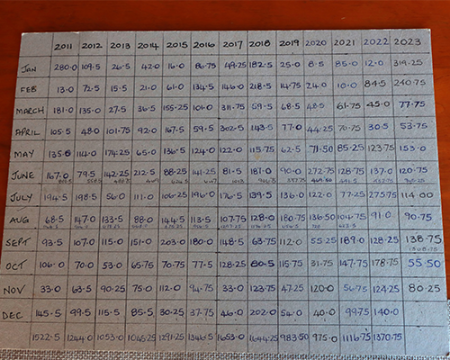 2011 2012 2013 2014 2015 2016 2017 2018 2019 2020 2021 2022 2023
JAN 280.0 109.5 26.5 42.0 16.0 86.75 49.25 182.5 25.0 8.5 85.0 12.0 319.25
FEB 13.0 72.5 15.5 21.0 61.0 134.5 146.0 218.5 114.75 24.0 10.0 84.5 240.75
MARCH 181.0 135.0 27.5 36.5 155.25 106.0 311.75 59.5 68.5 48.5 61.75 45.0 77.75
APRIL 105.5 48.0 101.75 92.0 167.5 59.5 302.5 143.5 77.0 44.25 70.75 30.5 53.75
MAY 135.5 114.0 174.25 65.0 136.5 124.0 122.0 115.75 62.5 71.50 85.25 123.75 153.0
JUNE 167.0 79.5 142.25 212.5 88.25 141.25 81.5 181.0 90.0 272.75 128.75 137.0 120.75
JULY 194.5 198.5 56.0 111.0 106.25 196.0 176.5 139.5 136.0 122.0 77.25 275.75 114.00
AUG 68.5 147.0 133.5 88.0 144.5 113.5 107.75 128.0 180.75 136.50 104.75 91.0 90.75
SEPT 93.5 107.0 115.0 151.0 203.0 180.0 148.5 63.75 112.0 55.25 189.0 128.25 138.75
OCT 106.0 70.0 53.0 65.75 70.75 77.5 128.25 80.5 115.75 31.75 147.75 178.75 55.50
NOV 33.0 63.5 90.25 75.0 112.0 94.75 33.0 123.75 47.25 120.0 56.75 124.25 80.25
DEC 145.5 99.5 115.5 85.5 30.25 37.75 46.0 202.0 54.0 40.0 99.75 140.0
1522.5 1244.0 1053.0 1045.25 1291.25 1346.5 1653.0 1644.25 983.50 975.0 1116.75 1370.75